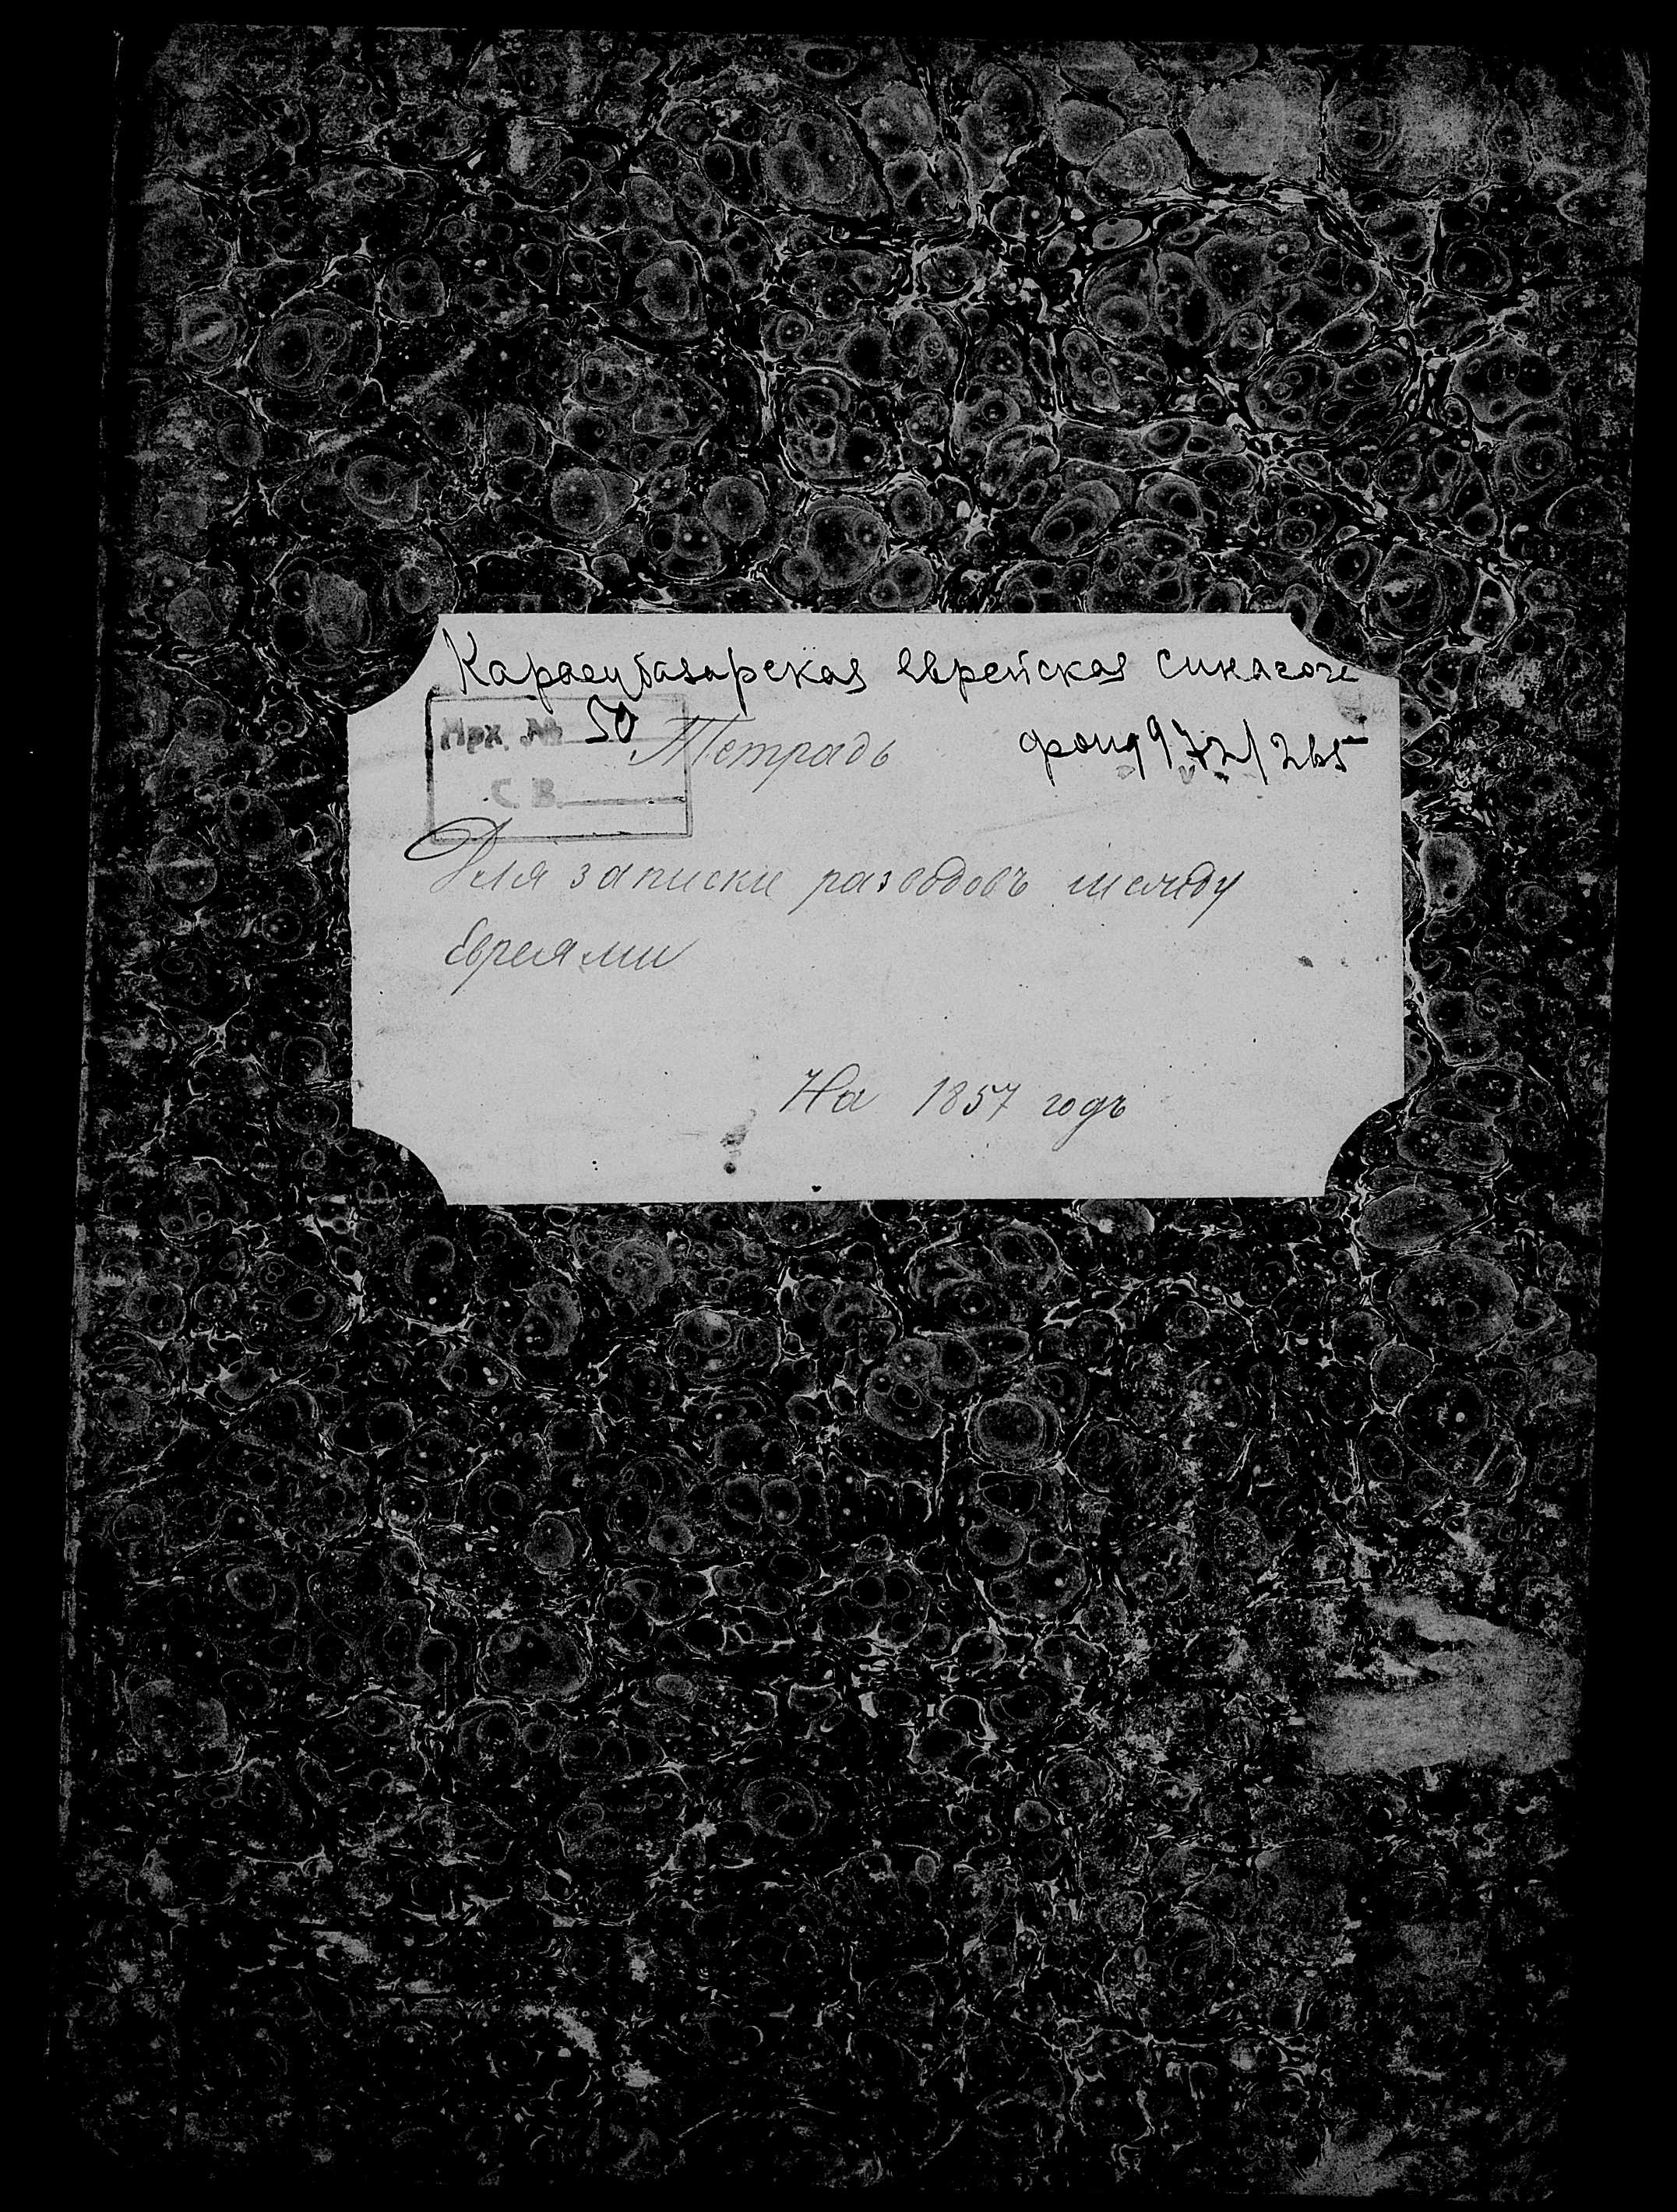 Карасубазарская еврейская синагога
Арх. № 50 Тетрадь фонд 972/265
С. В.
Для записки разводовъ между
Евреями
На 1857 годъ